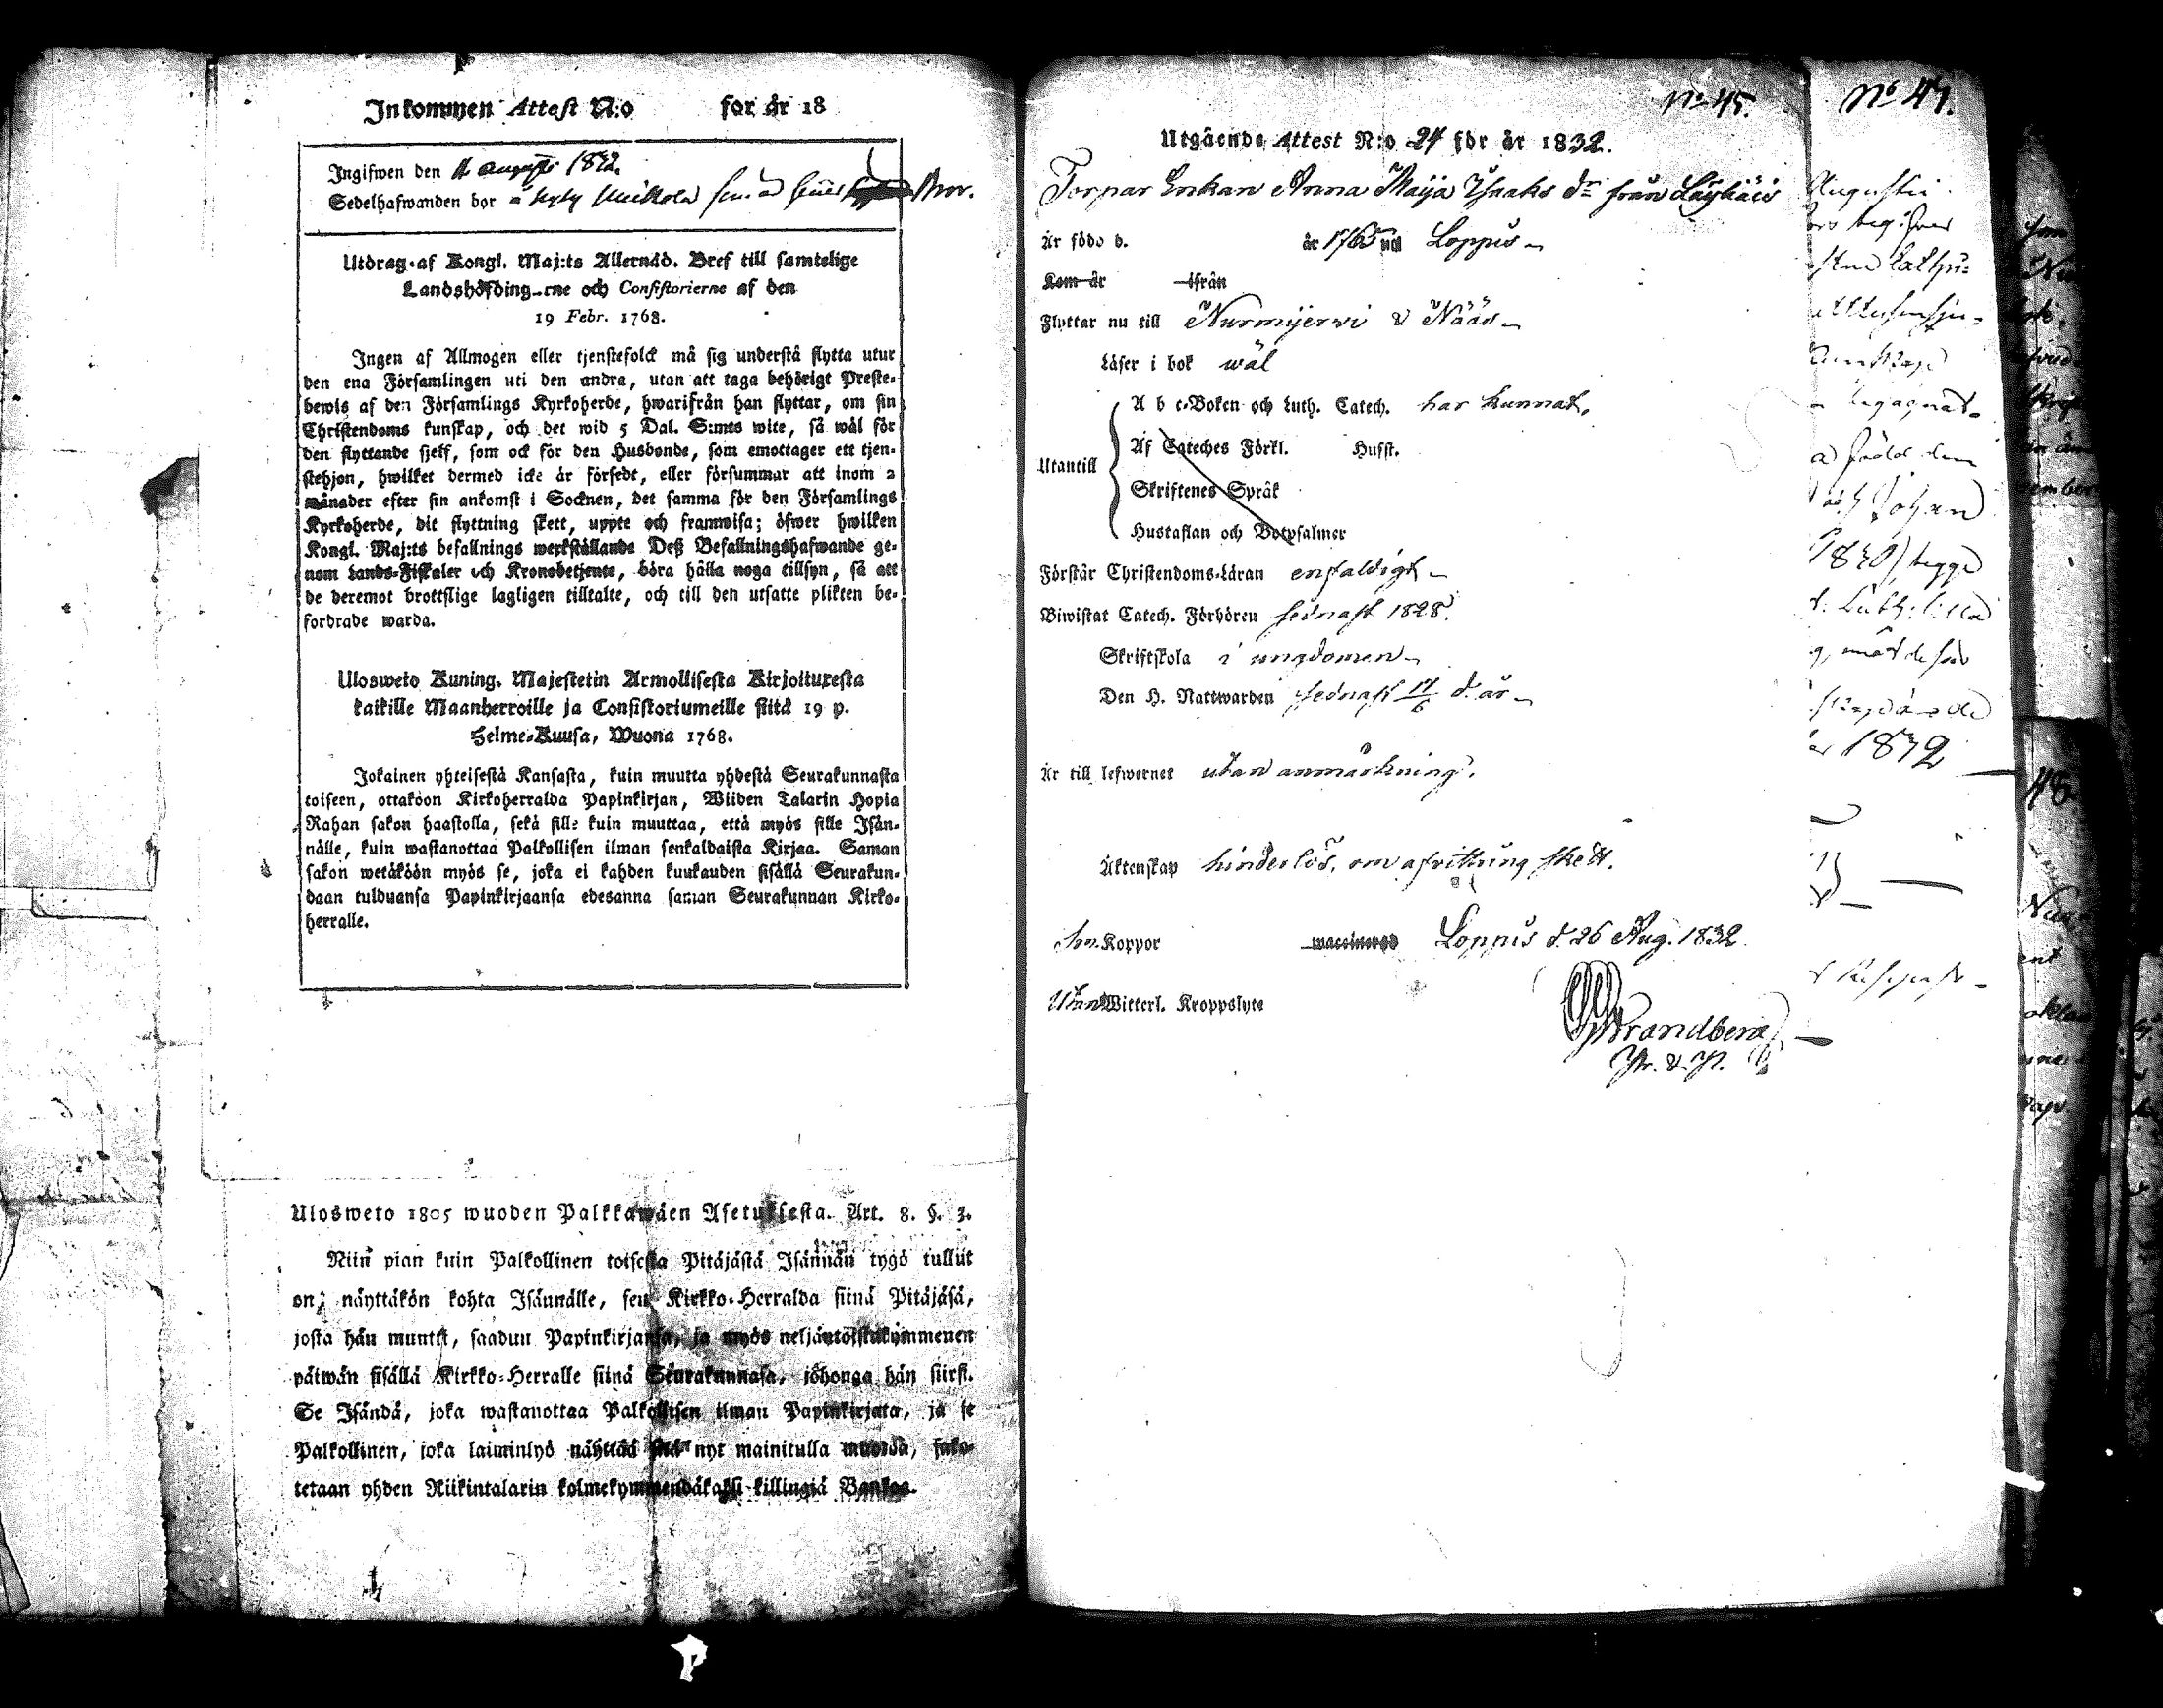 Inkommen Attest N:o för år 18
Ingifwen den augusti 1832.
Sedelhafwanden bor
Utdrag af Kongl. Maj:ts Allernåd. Bref till samtelige
Landshöfding-rne och Consistorierne af den
19 Febr. 1768.
Ingen af Allmogen eller tjenstefolck må sig understå flytta utur
den ena Församlingen uti den andra, utan att taga behörigt Preste-
bewis af den Församlings Kyrkoherde, hwarifrån han flyttar, om sin
Christendoms kunskap, och det wid 5 Dal. S:mts wite, så wäl för
den flyttande sjelf, som ock för den Husbonde, som emottager ett tjen-
stehjon, hwilket dermed icke är försedt, eller försummar att inom 2
månader efter sin ankomst i Socknen, det samma för den Församlings
Kyrkoherde, dit flyttning skett, uppte och framwisa; öfwer hwilken
Kongl. Maj:ts befallnings werkställande Deß Befallningshafwande ge-
nom Lands-Fiskaler och Kronobetjente, böra hålla noga tillsyn, så att
de deremot brottslige lagligen tilltalte, och till den utsatte plikten be-
fordrade warda.
Ulosweto Kuning. Majestetin Armollisesta Kirjoituxesta
kaikille Maanherroille ja Consistoriumeille siitä 19 p.
Helme-Kuusa, Wuona 1768.
Jokainen yhteisestä Kansasta, kuin muutta yhdestä Seurakunnasta
toiseen, ottakoon Kirkoherralda Papinkirjan, Wiiden Talarin Hopia
Rahan sakon haastolla, sekä sille kuin muuttaa, että myös sille Isän-
nälle, kuin wastanottaa Palkollisen ilman senkaldaista Kirjaa. Saman
sakon wetäköön myös se, joka ei kahden kuukauden sisällä Seurakun-
daan tulduansa Papinkirjaansa edesanna saman Seurakunnan Kirko-
herralle.
Ulosweto 1805 wuoden Palkkawäen Asetuksesta. Art. 8. §. 3.
Niin pian kuin Palkollinen toisesta Pitäjästä Isännän tygö tullut
on, näyttäkön kohta Isännälle, sen Kirkko-Herralda siinä Pitäjäsä,
josta hän muutti, saadun Papinkirjansa, ja myös neljäntoistakymmenen
päiwän sisällä Kirkko-Herralle siinä Seurakunnasa, johonga hän siirsi.
Se Isändä, joka wastanottaa Palkollisen ilman Papinkirjata, ja se
Palkollinen, joka laiminlyö näyttää sitä nyt mainitulla muodda, sako-
tetaan yhden Riikintalarin kolmekymmendäkaksi killingiä Bankos.
No 45.
Utgående Attest N:o 24 för år 1832.
Torpar Enkan Anna Maija Isaks dr från Läyliäis
Är född d. år 1765 uti Loppis
Kom år ifrån
Flyttar nu till Nurmijerwi & Nääs
Läser i bok wäl
Utantill
A b c-Boken och Luth. Catech. har kunnat.
Af Cateches Förkl. Husst.
Skriftenes Språk
Hustaflan och Botpsalmer
Förstår Christendoms-Läran enfaldigt
Biwistat Catech. Förhören sednast 1828.
Skriftskola i ungdomen
Den H. Nattwarden sednast 17/6 d. år
Är till lefwernet utan anmärkning.
Äktenskap hinderlös, om afvittring skett.
Koppor waccinerad Loppis d. 26 Aug. 1832
Utan Witterl. Kroppslyte
Strandberg
No 47.
Augustii
Johan
1830) begge
1832